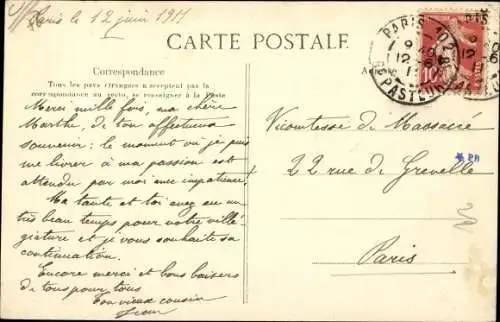 Paris le 12 juin 1911
CARTE POSTALE
Correspondance
Tous les pays étrangers n'acceptent pas la
correspondance au verso, se renseigner à la Poste
Merci mille fois, ma chère
Marthe, de ton affectueux
souvenir : le moment où je puis
me livrer à ma passion est
attendu par moi avec impatience!
Ma tante et toi avez eu un
très beau temps pour votre villé-
giature et je vous souhaite sa
continuation.
Encore merci et bons baisers
de tous pour tous
Ton vieux cousin
Vicomtesse de
22 rue de Grenelle
Paris
PARIS
9 40
12 - 6
PASTEUR
10
PH